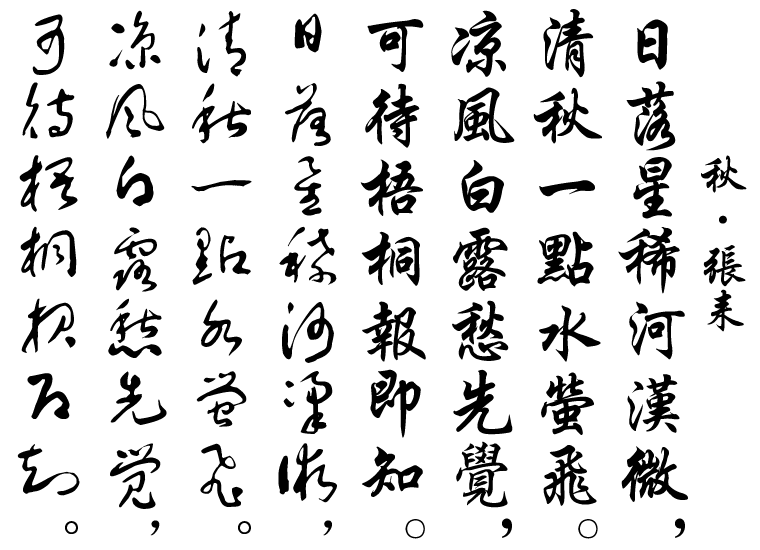 秋·張耒
日落星稀河漢微，
清秋一點水螢飛。
涼風白露愁先覺，
可待梧桐報即知。
日落星稀河漢微，
清秋一點水螢飛。
凉风白露愁先觉，
可待梧桐报即知。